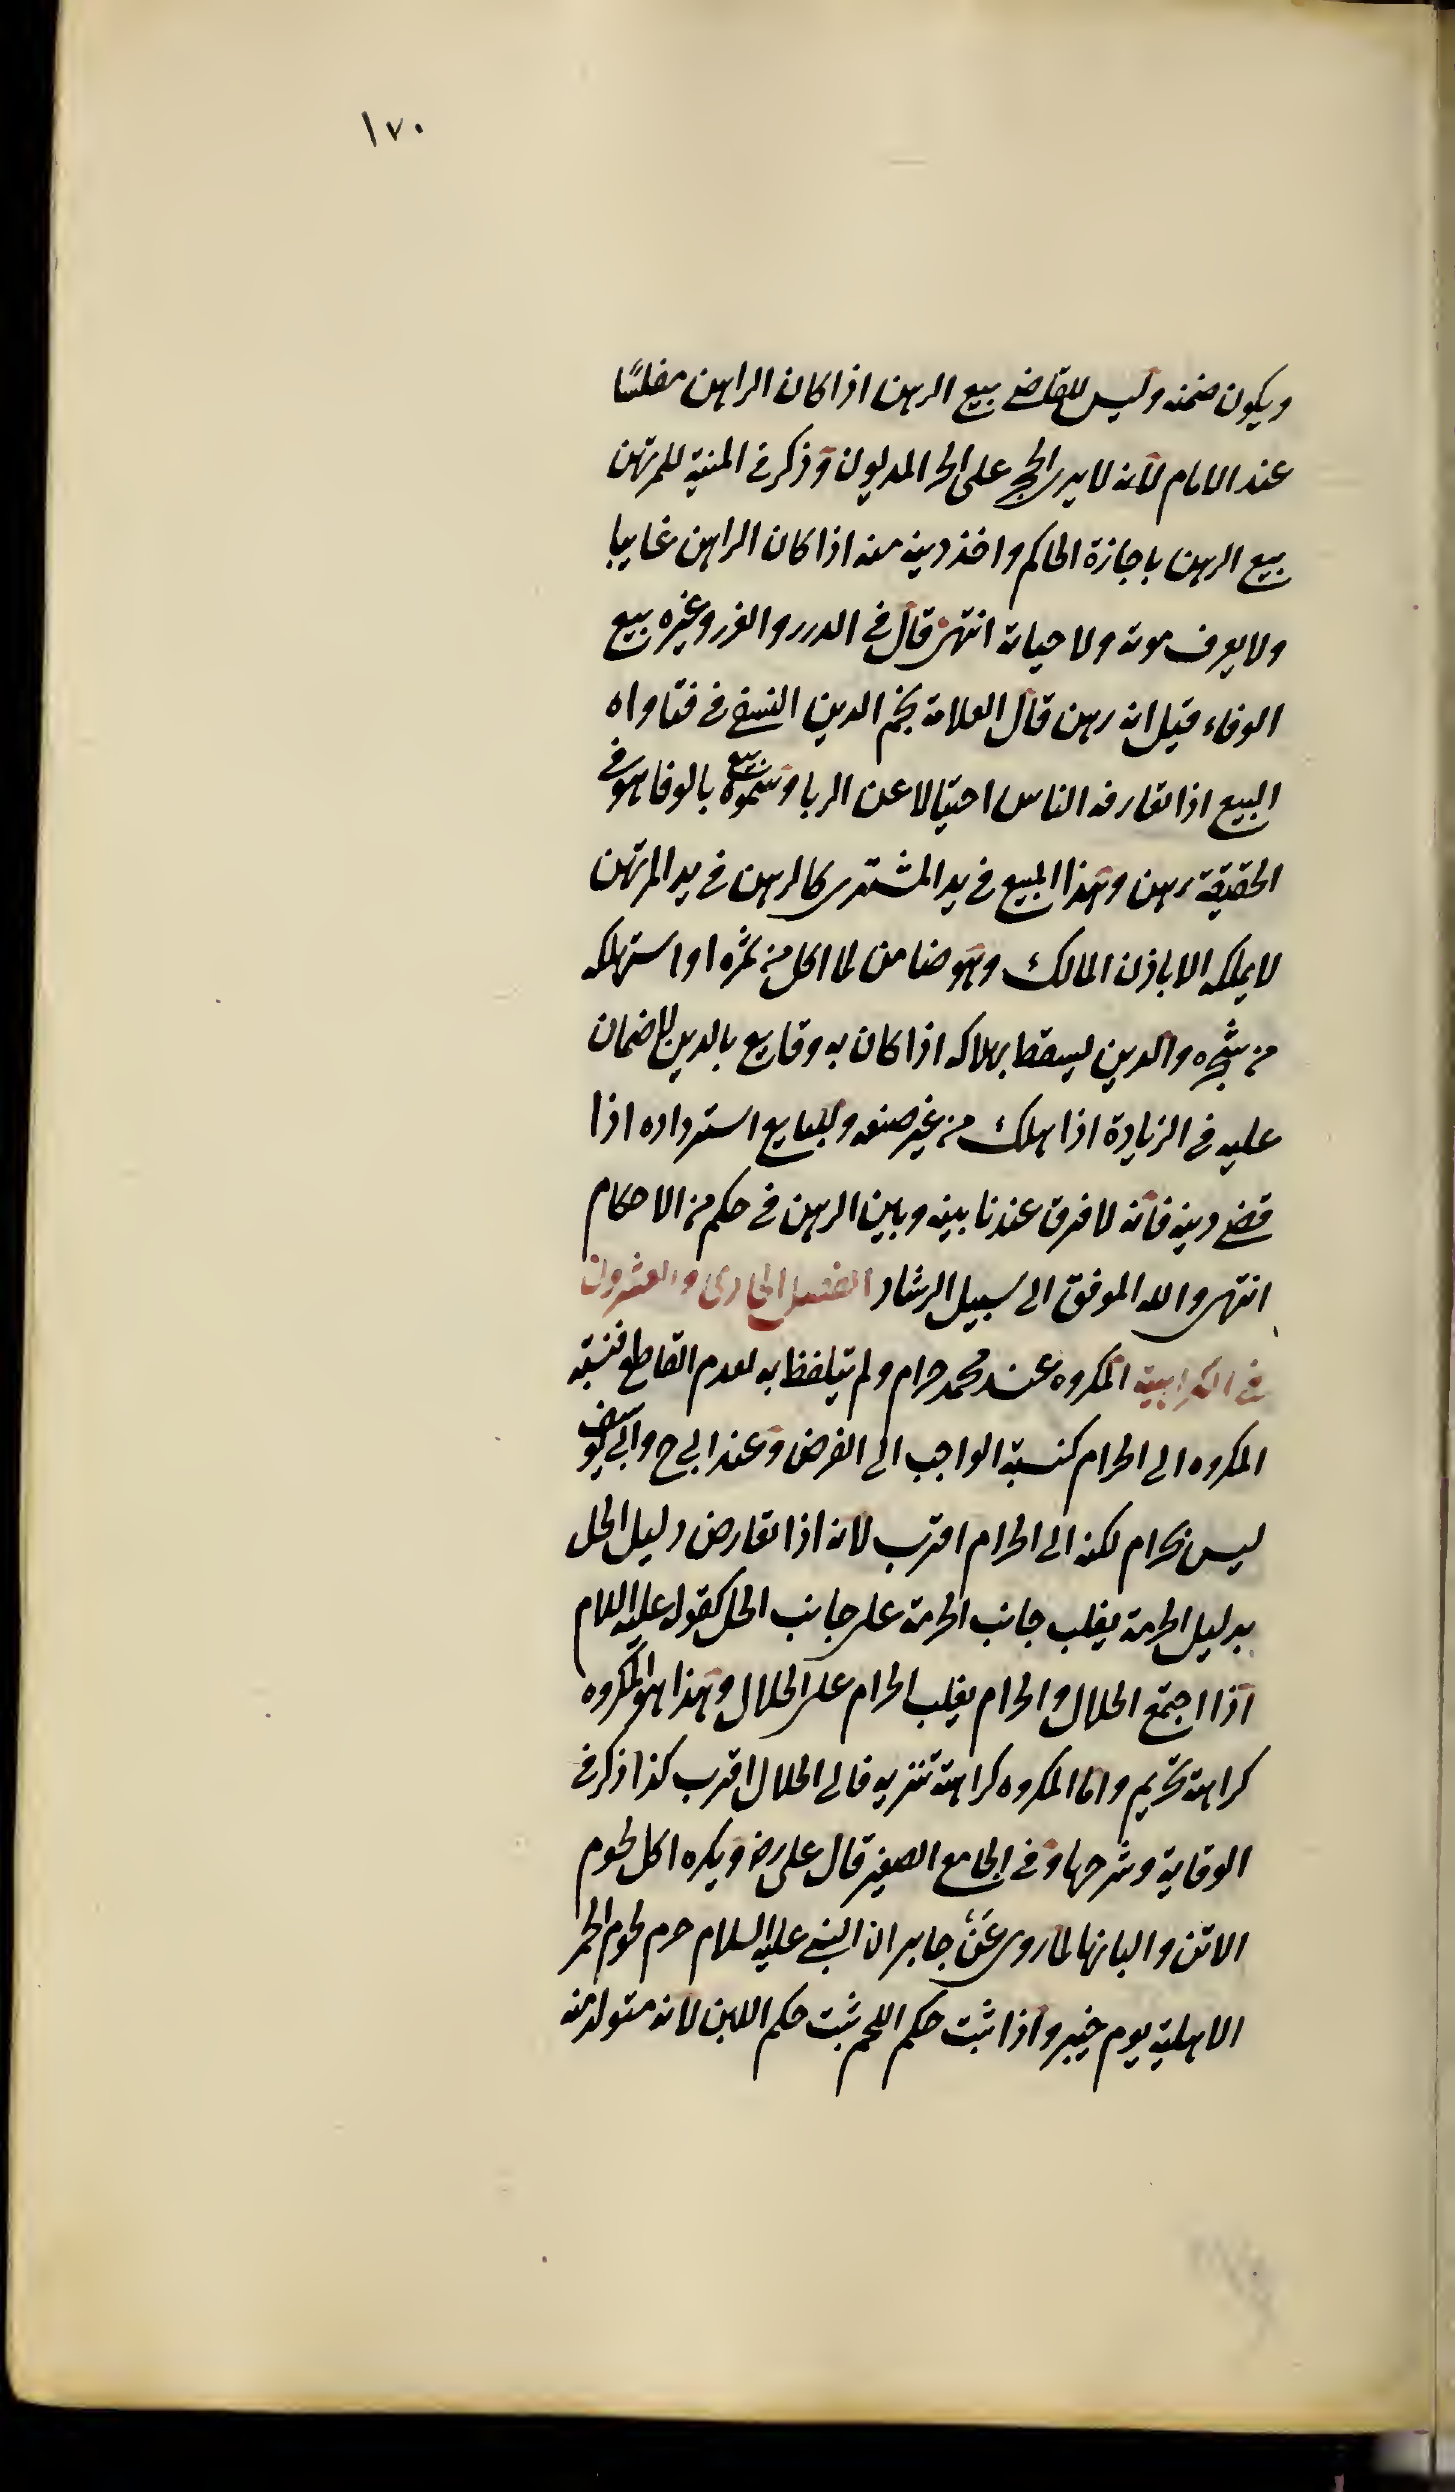 ١٧٠
ويكون ضمنه وليس للقاضي بيع الرهن اذا كان الراهن مفلسًا
عند الامام لانه لا يرى الحجر على الحر المديون وذكر في المنية للمرتهن
بيع الرهن باجازة الحاكم واخذ دينه منه اذا كان الراهن غايبا
ولا يعرف موته ولا حياته انتهى قال في الدرر والغرر وغيره بيع
الوفاء قيل انه رهن قال العلامة نجم الدين النسفي في فتاواه
البيع اذا تعارفه الناس احتيالا عن الربا وسموه بيع بالوفا هو في
الحقيقة رهن وهذا المبيع في يد المشتري كالرهن في يد المرتهن
لا يملكه الا باذن المالك وهو ضامن لما اكل من ثمره او استهلكه
من شجره والدين يسقط بهلاكه اذا كان به وفا بيع بالدين لا ضمان
عليه في الزيادة اذا هلك من غير صنعه وللبايع استرداده اذا
قضى دينه فانه لا فرق عندنا بينه وبين الرهن في حكم من الاحكام
انتهى والله الموفق الى سبيل الرشاد الفصل الحادي والعشرون
في الكراهية المكروه عند محمد حرام ولم يتلفظ به لعدم القاطع فنسبة
المكروه الى الحرام كنسبة الواجب الى الفرض وعند ابي ح وابي يوسف
ليس بحرام لكنه الى الحرام اقرب لانه اذا تعارض دليل الحل
بدليل الحرمة يغلب جانب الحرمة على جانب الحل كقوله عليه السلام
اذا اجتمع الحلال والحرام يغلب الحرام على الحلال وهذا هو المكروه
كراهة تحريم واما المكروه كراهة تنزيه فالى الحلال اقرب كذا ذكر في
الوقاية وشرحها وفي الجامع الصغير قال على رض ويكره اكل لحوم
الاتن والبانها لما روى عن جابر ان النبي عليه السلام حرم لحوم الحمر
الاهلية يوم خيبر واذا ثبت حكم اللحم ثبت حكم اللبن لانه متولد منه